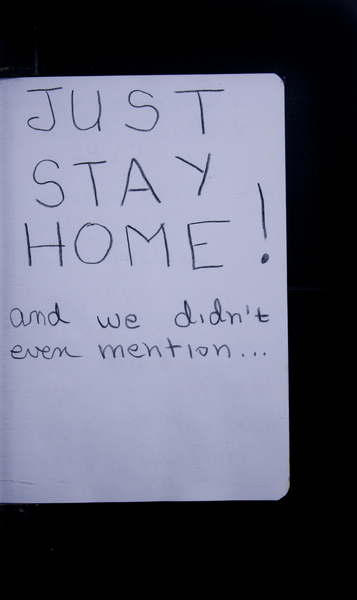 JUST
STAY
HOME!
and we didn't
even mention...